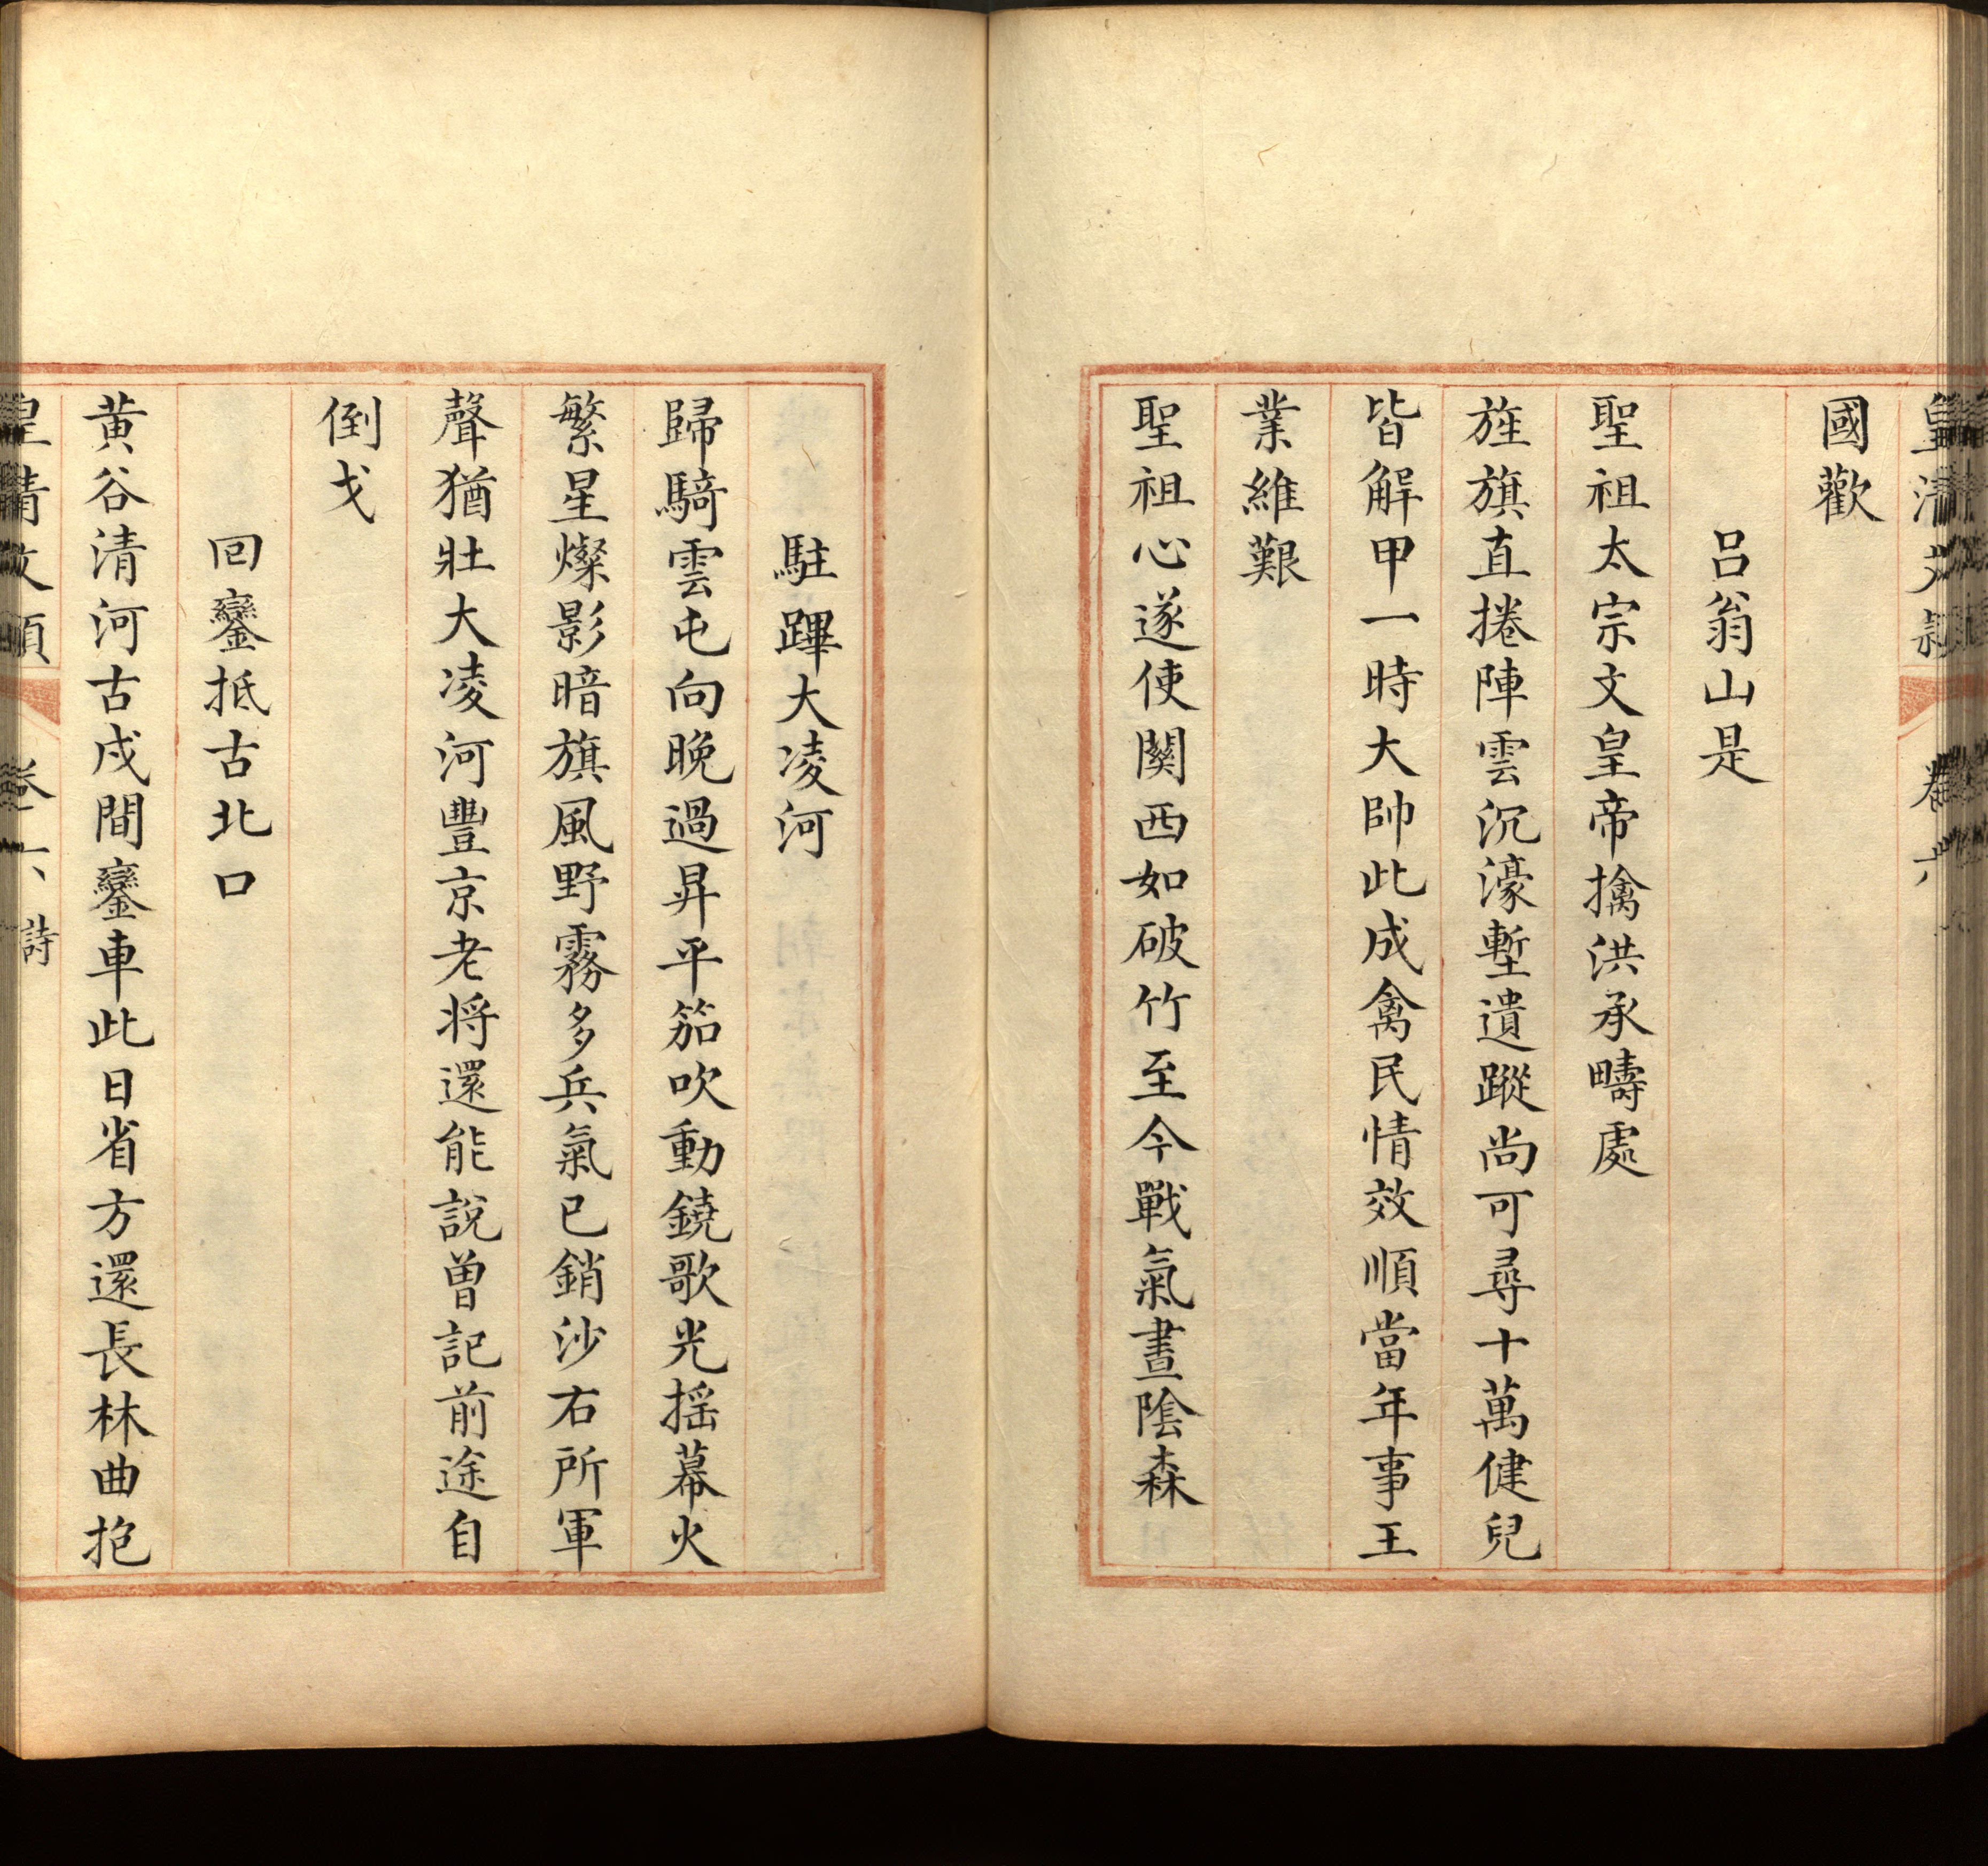 皇清文穎 卷六
國歡
呂翁山是
聖祖太宗文皇帝擒洪承疇處
旌旗直捲陣雲沉濠塹遺蹤尚可尋十萬健兒
皆解甲一時大帥此成禽民情效順當年事王
業維艱
聖祖心遂使關西如破竹至今戰氣晝陰森
駐蹕大凌河
歸騎雲屯向晚過昇平笳吹動鐃歌光摇幕火
繁星燦影暗旗風野霧多兵氣已銷沙右所軍
聲猶壯大凌河豐京老将還能説曽記前途自
倒戈
回鑾抵古北口
黄谷清河古戍間鑾車此日省方還長林曲抱
皇清文穎 卷六 詩